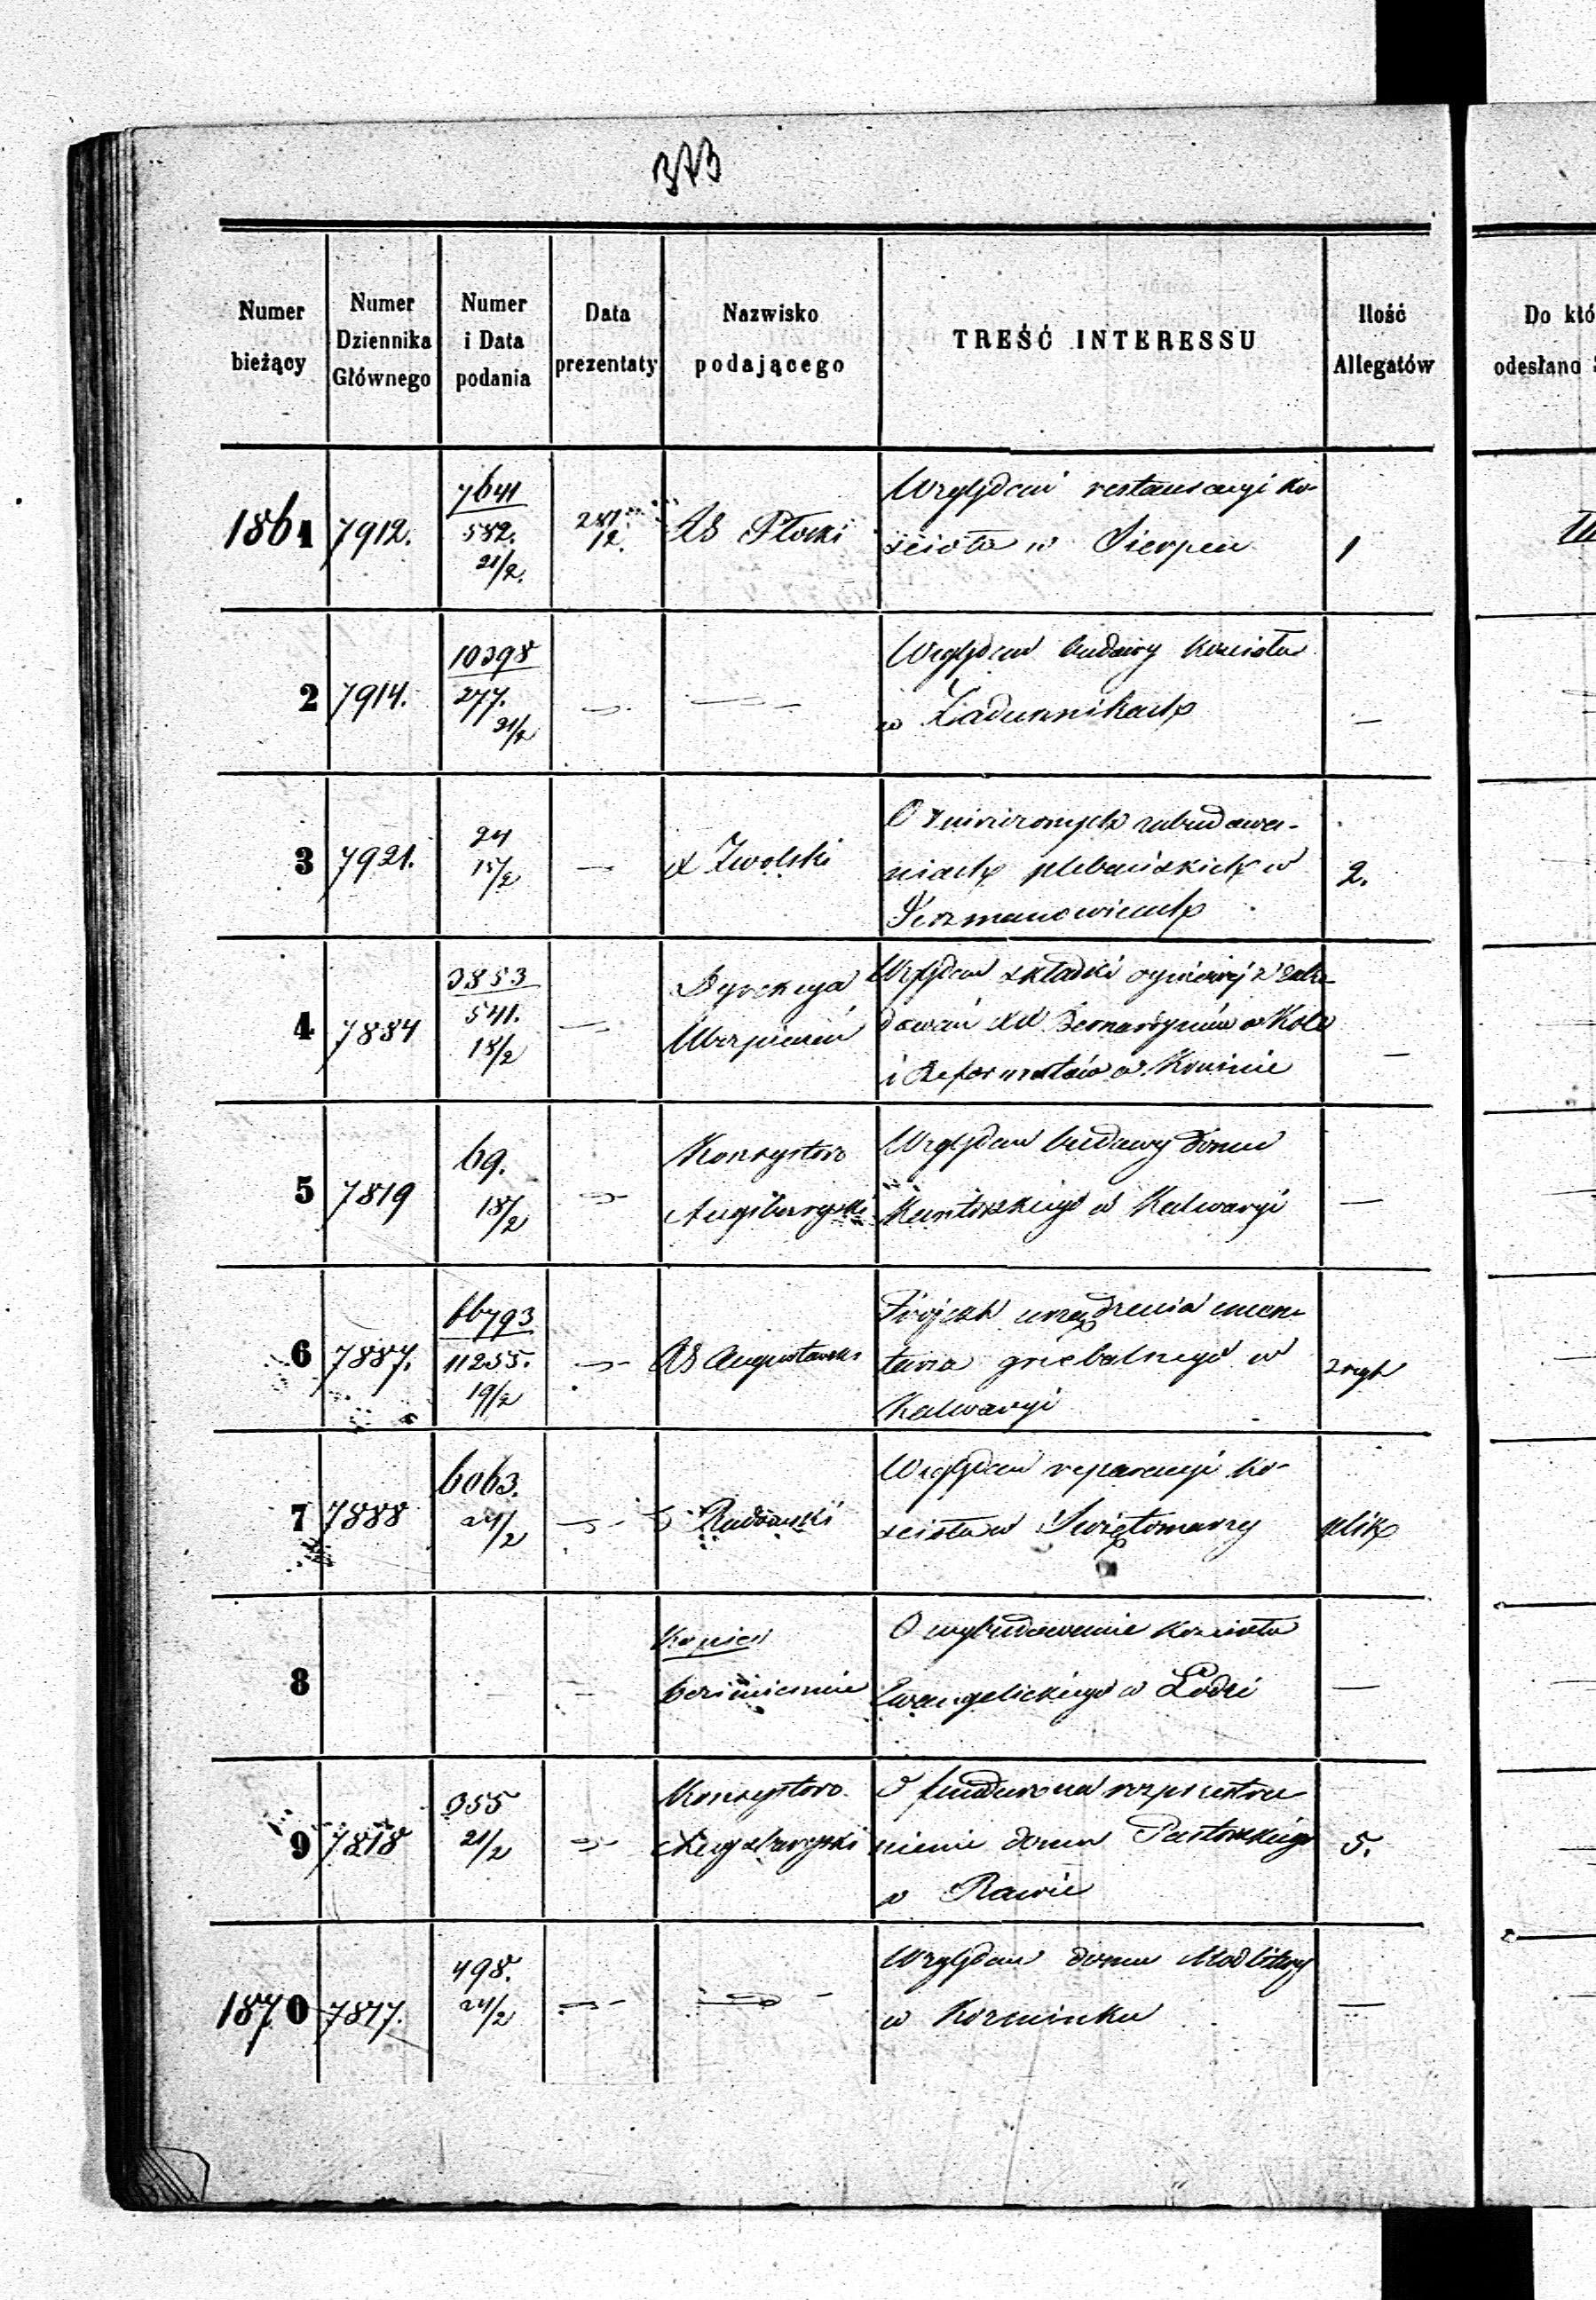 373
Numer bieżący | Numer Dziennika Głównego | Numer i Data podania | Data prezentaty | Nazwisko podającego | TREŚĆ INTERESSU | Ilość Allegatów | Do któ
odesłano
1861 | 7912. | 7641 / 582. 21/2. | 28/12. | RG Płocki | Względem restauracyi ko-
ścioła w Sierpcu | 1 | III
2 | 7914. | 10398 / 277. 21/2 | — | — | Względem budowy kościoła
w Zadusznikach | —
3 | 7921. | 24 15/2 | — | X Zwolski | O zniszczonych zabudowa-
niach plebańskich w
Jerzmanowicach | 2.
4 | 7884 | 3853 / 541. 18/2 | — | Dyrekcya
Ubezpieczeń | Względem składki ogniowej z zabu-
dowań XX Bernardynów w Kole
i Reformatów w Koninie | —
5 | 7819 | 69. 18/2 | — | Konsystorz
Augsburgski | Względem budowy domu
Kantorskiego w Kalwaryi | —
6 | 7887. | 66793 / 11255. 19/2 | — | RG Augustowski | Projekt urządzenia cmen-
tarza grzebalnego w
Kalwaryi | 2 egz
7 | 7888 | 6063. 24/2 | — | Radomski | Względem reparacyi ko-
ścioła w Świętomarzy | plik
8 | — | Kopia
bezimiennie | O wybudowanie kościoła
Ewangelickiego w Łodzi | —
9 | 7818 | 355 21/2 | — | Konsystorz
Augsburgski | O fundusz na rozprzestrze-
nienie domu Pastorskiego
w Rawie | 5.
1870 | 7817. | 498. 24/2 | — | — | Względem domu Modlitwy
w Koźminku | —